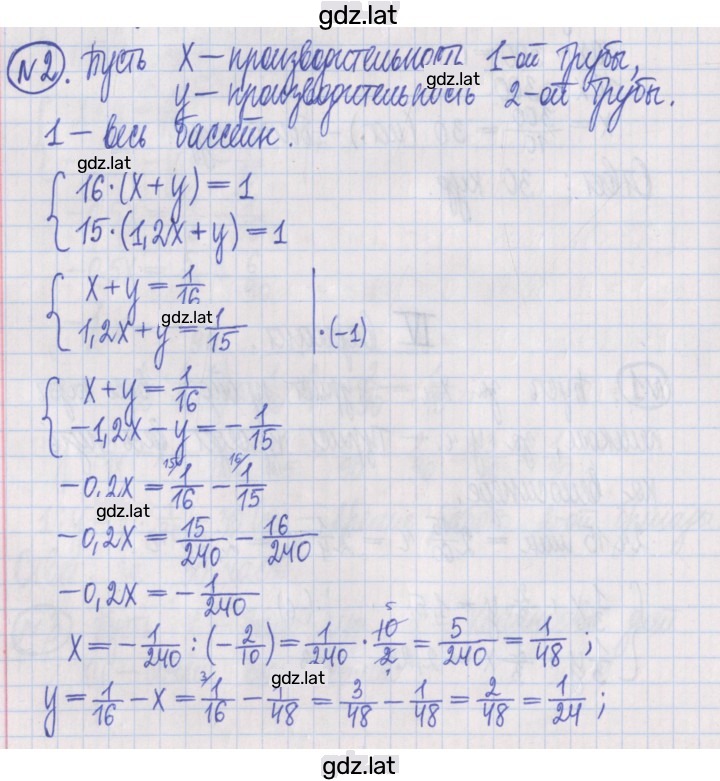 gdz.lat
№2. Пусть x – производительность 1-ой трубы,
gdz.lat
y – производительность 2-ой трубы.
1 – весь бассейн.
gdz.lat
{ 16·(x+y) = 1
15·(1,2x+y) = 1
{ x+y = 1/16
1,2x+y = 1/15 | ·(-1)
gdz.lat
{ x+y = 1/16
-1,2x-y = -1/15
-0,2x = 15/ 1/16 - 16/ 1/15
gdz.lat
-0,2x = 15/240 - 16/240
-0,2x = -1/240
x = -1/240 : (-2/10) = 1/240 · 10/2 = 5/240 = 1/48 ;
gdz.lat
y = 1/16 - x = 3/ 1/16 - 1/48 = 3/48 - 1/48 = 2/48 = 1/24 ;
gdz.lat